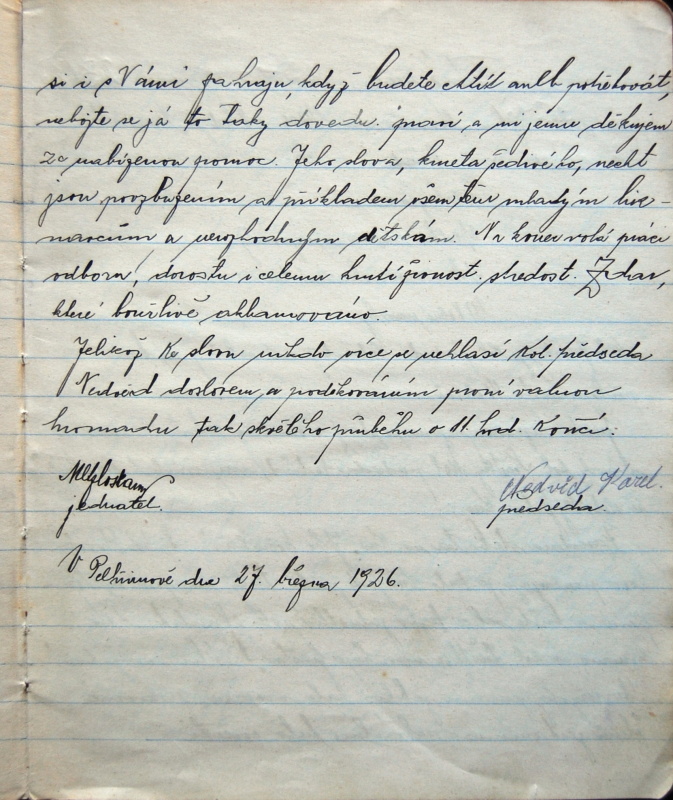 si i s Vámi zahraju, když budete chtít aneb potřebovat,
nebojte se já to taky dovedu. praví a mi jemu děkujem
za nabízenou pomoc. Jeho slova, kmeta šedivého, nechť
jsou povzbuzením a příkladem všem těm mladým
a nerozhodným dítkám. Na konec volá práci
odboru, dorostu i celému hnutí činnost. Zdar,
které bouřlivě akklamováno.
Jelikož ku slovu nikdo více se nehlasí Kol. předseda
Nedvěd doslovem, a poděkováním první valnou
hromadu tak skvělého průběhu o 11 hod. Končí:
jednatel.
Nedvěd Karel.
předseda.
V Pelhřimově dne 27. března 1926.